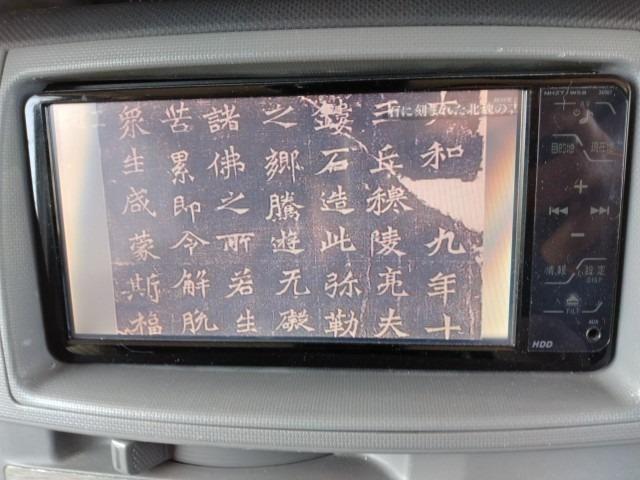 に刻まれた北魏の
和 九年十
王丘穆陵亮夫
鏤石造此弥勒
之鄉騰遊无礙
諸佛之所若生
苦累即令解脱
衆生咸蒙斯福
AV
目的地 現在地
+
−
情報 設定
DISP
TILT
AUX
HDD